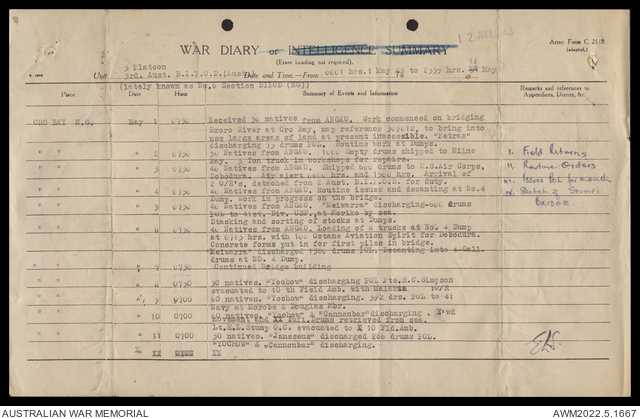 12 JUN 43
Army Form C. 2118
(adapted.)
WAR DIARY or INTELLIGENCE SUMMARY
(Erase heading not required).
3 Platoon
Unit 3rd. Aust. B.I.P.O.D. (Aust) Date and Time.—From 0001 hrs. 1 May 43 to 2359 hrs. May
(lately known as No.6 Section BIPOD (NG))
Place Date Hour Summary of Events and Information Remarks and references to Appendices, Diaries, &c.
ORO BAY N.G. May 1 0730 Received 50 natives from ANGAU. Work commenced on bridging
Eroro River at Oro Bay, map reference 309012, to bring into
use large areas of land at present inaccesible. "Petras"
discharging 75 drums POL. Routine work at Dumps.
" " " 2 0730 50 Natives from ANGAU. 1000 Empty drums shipped to Milne
Bay. 3 Ton truck in workshops for repairs.
" " " 3 0730 40 Natives from ANGAU. Shipped 600 drums to U.S.Air Corps,
Dobodura. Air alert 0800 hrs. and 1500 hrs. Arrival of
2 O/R's, detached from 2 Aust. B.I.P.O.D. for duty.
" " " 4 0730 40 Natives from ANGAU. Routine issues and decanting at No.4
Dump. Work in progress on the bridge.
" " " 5 0730 40 Natives from ANGAU. "Meiwarra" discharging-600 drums
POL to 41st. Div. USN, at Moriko by sea.
Stacking and sorting of stocks at Dumps.
" " " 6 0730 40 Natives from ANGAU. Loading of 8 trucks at No.4 Dump
at 0715 hrs. with 100 Octane Aviation Spirit for Dobodura.
Concrete forms put in for first piles in bridge.
"Meiwarra" discharged 1500 drums POL. Decanting into 4-Gall.
drums at NO. 4 Dump.
" " " 7 0730 Continued Bridge building
" " " 8 0730 50 natives. "Yochow" discharging POL Pte.R.C.Simpson
evacuated to 10th Field Amb. with Malaria
" " " 9 0700 60 natives. "Yochow" discharging. 392 drs. POL to 41
Navy at Morobe & Douglas Hbr.
" " " 10 0700 60 natives. "Yochow" & "Cannonbar" discharging.
drums retrieved from sea.
Lt.E.E.Stump O.C. evacuated to 10 Fld.Amb.
" " " 11 0700 50 natives. "Janssens" discharged 206 drums POL.
"YOCHOW" & "Cannonbar" discharging.
I. Field Returns
II. Routine Orders
III. Issues POL for month
IV. Sketch of Stumps
Bridge.
AUSTRALIAN WAR MEMORIAL
AWM2022.5.1667